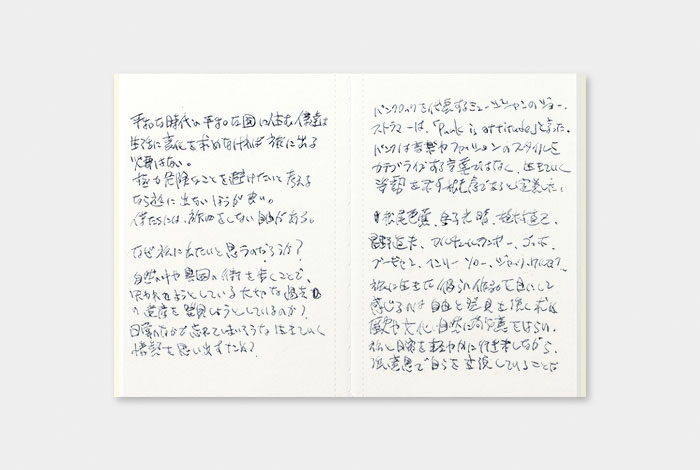 平和な時代の平和な国に住む僕達は
生活に変化を求めなければ旅に出る
必要はない。
極力危険なことを避けたいと考える
なら旅に出ないほうが良い。
僕たちには、旅をしない自由がある。
なぜ旅に出たいと思うのだろうか?
自然の中や異国の街を歩くことで、
失われようとしている大切な過去
の遺産を発見しようとしているのか?
日常のなかで忘れてしまいそうな生きていく
情熱を思い出すため?
パンクロックを代表するミュージシャンのジョー・
ストラマーは、「Punk is attitude」と言った。
パンクは音楽やファッションのスタイルを
カテゴライズする言葉ではなく、生きていく
姿勢を示す態度であると定義した。
松尾芭蕉、金子光晴、植村直己、
星野道夫、ゴッホ、
ゴーギャン、ヘンリー・ソロー、ジャック・ケルアック。
旅に生きた彼らの作品を目にして
感じるのは自由と発見を強く求め
歴史や文化、自然に敬意をはらい、
旅と日常を軽やかに往来しながら、
強い意思で自らを表現していることだ